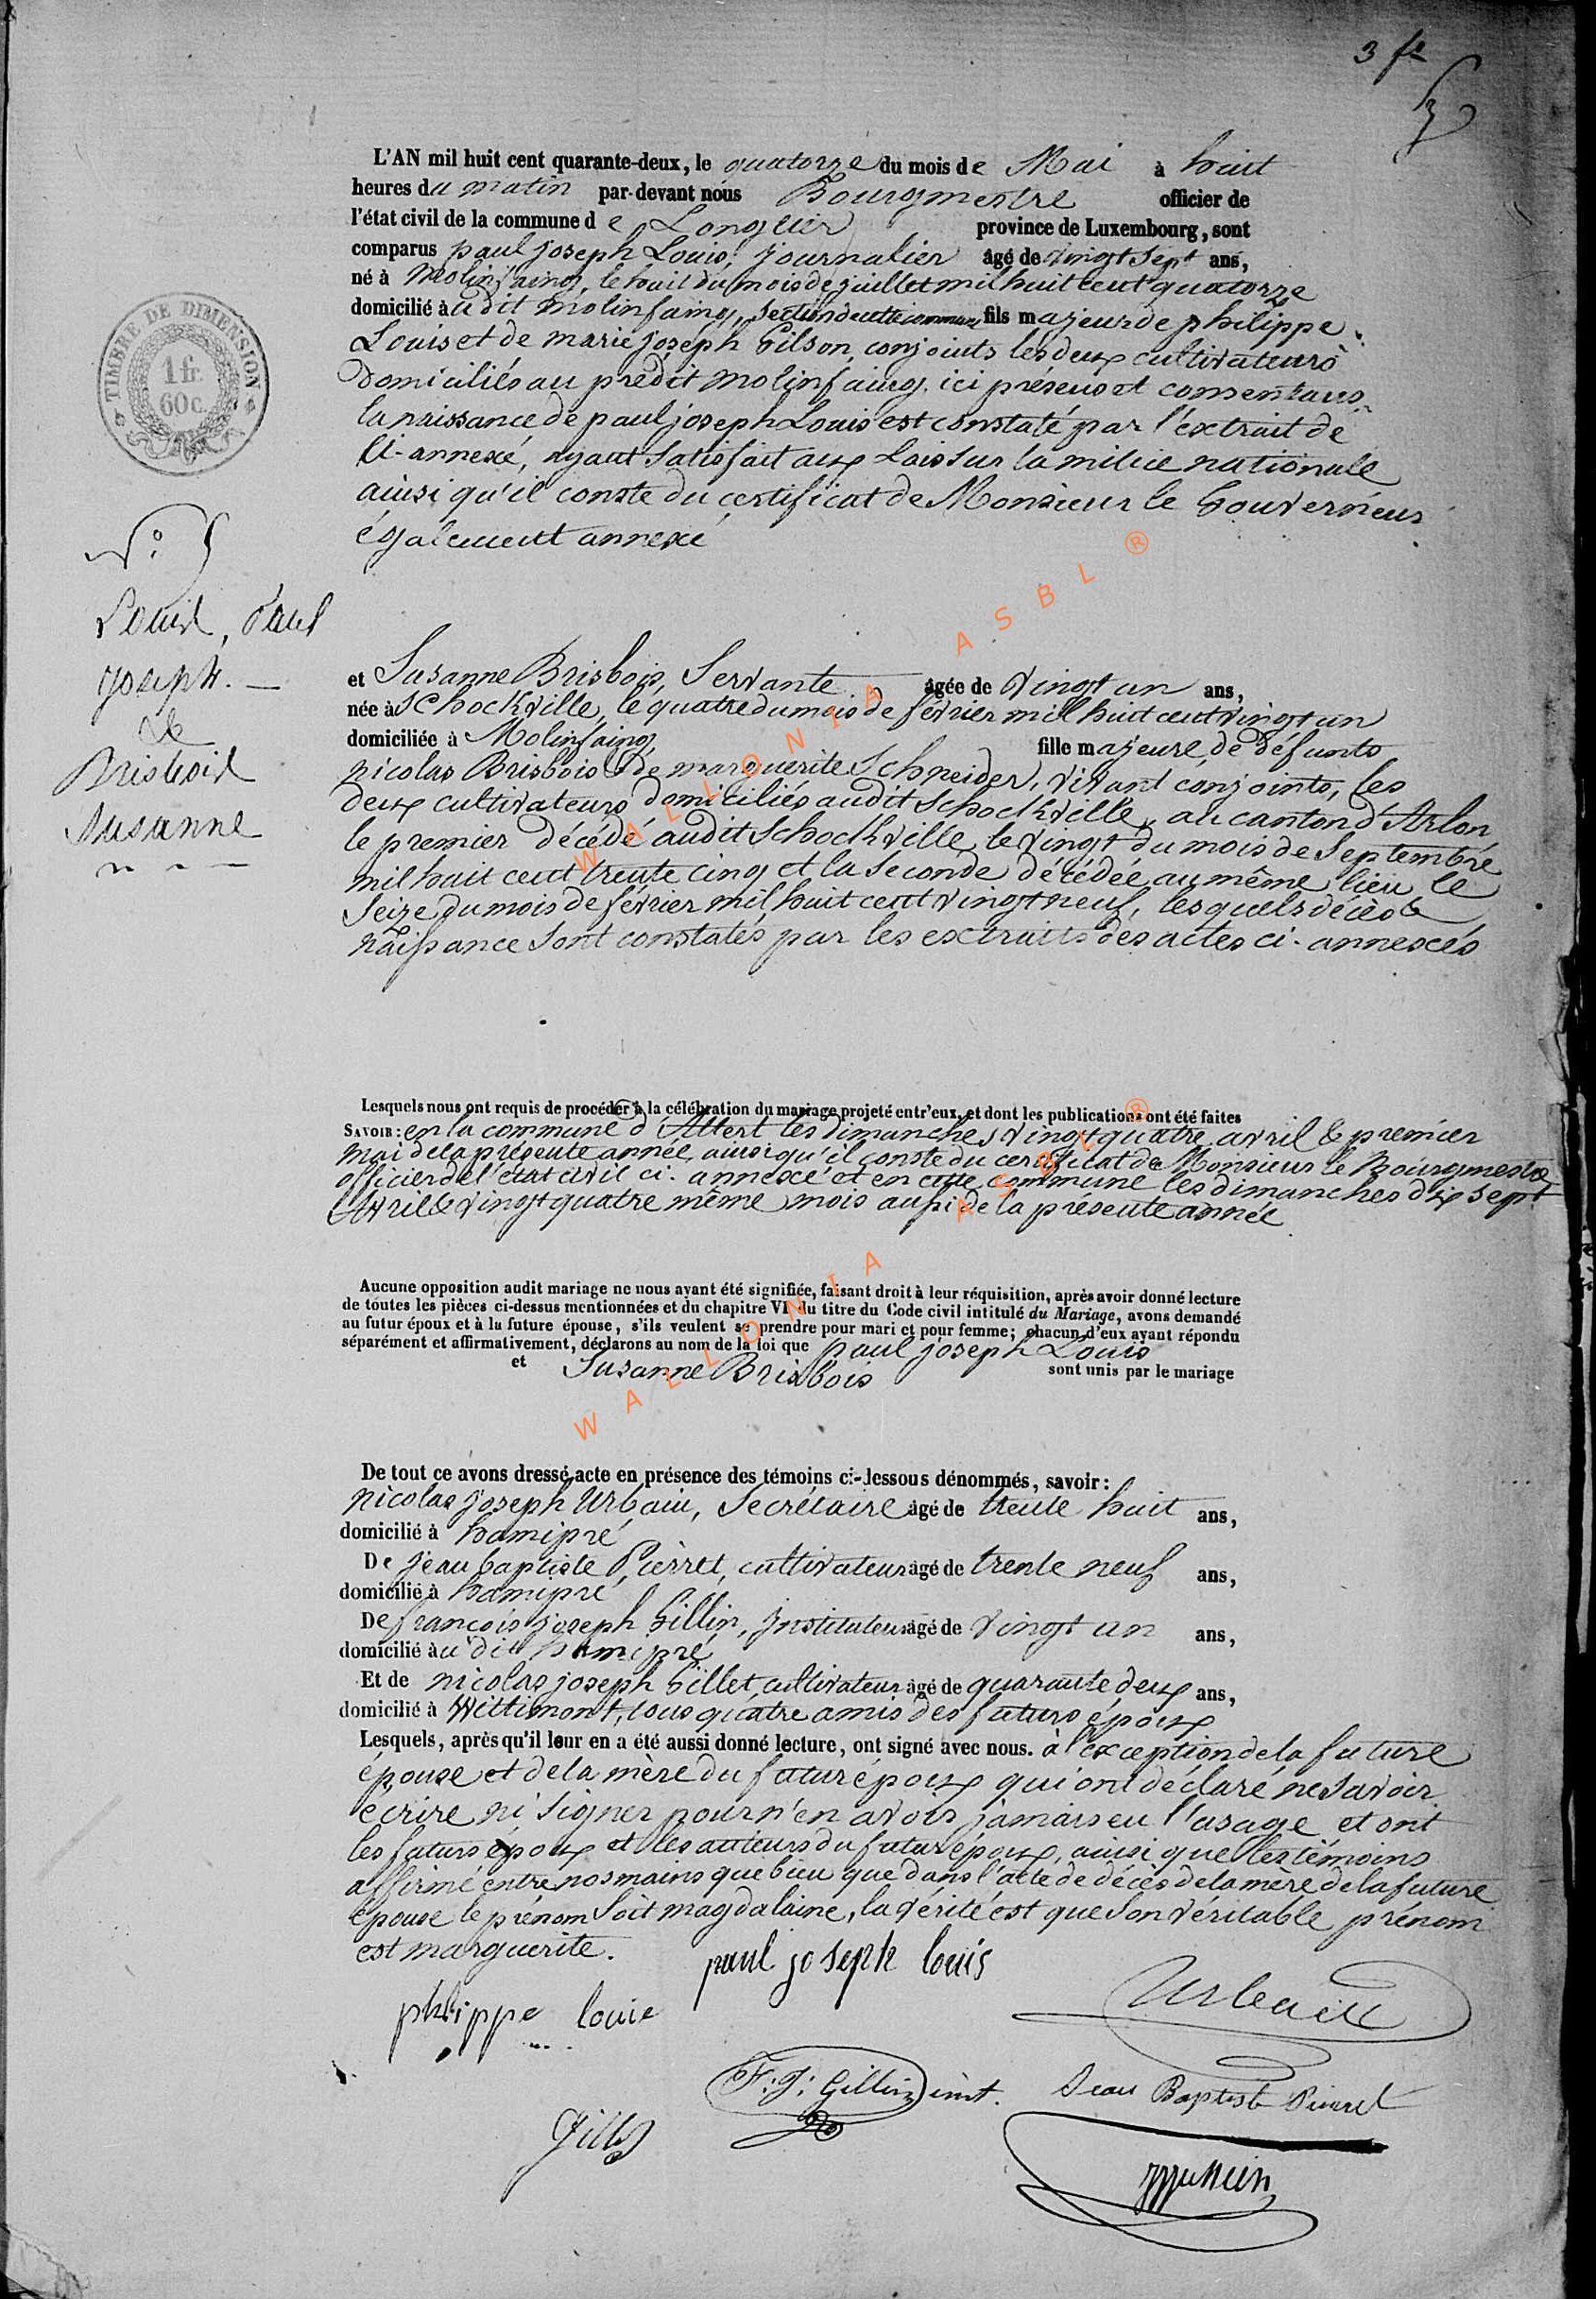 3 fe
L'AN mil huit cent quarante-deux, le quatorze du mois de Mai à huit
heures du matin par-devant nous Bourgmestre officier de
l'état civil de la commune de Longlier province de Luxembourg, sont
comparus paul joseph Louis, journalier âgé de vingt sept ans,
né à Molinfaing, le huit du mois de juillet mil huit cent quatorze
domicilié à u dit Molinfaing, section de cette commune fils majeur de philippe
Louis et de marie joseph Gilson, conjoints les deux cultivateurs
domiciliés au prédit molinfaing, ici présens et consentans
la naissance de paul joseph Louis est constaté par l'extrait de
ci-annexé, ayant satisfait aux Lois sur la milice nationale
ainsi qu'il conste du certificat de Monsieur le Gouverneur
également annexé
TIMBRE DE DIMENSION
1 fr.
60 c.
N° 5
Louis, Paul
joseph. —
&
Brisbois
Susanne
et Susanne Brisbois, Servante âgée de vingt un ans,
née à Schockville, le quatre du mois de février mil huit cent vingt un
domiciliée à Molinfaing, fille majeure de défunts
nicolas Brisbois & de marguerite Schneider, vivant conjoints, les
deux cultivateurs domiciliés audit Schockville, au canton d'Arlon
le premier décédé audit Schockville le vingt du mois de Septembre
mil huit cent trente cinq et la seconde décédée au même lieu le
Seize du mois de février mil huit cent vingt neuf, lesquels décès &
naissance sont constatés par les extraits des actes ci-annexés
Lesquels nous ont requis de procéder à la célébration du mariage projeté entr'eux, et dont les publications ont été faites
SAVOIR: en la commune d'Attert les dimanches vingt quatre avril & premier
mai de la présente année, ainsi qu'il conste du certificat de Monsieur le Bourgmestre
officier de l'état civil ci-annexé et en cette commune les dimanches dix sept
Avril & vingt quatre même mois aussi de la présente année
Aucune opposition audit mariage ne nous ayant été signifiée, faisant droit à leur réquisition, après avoir donné lecture
de toutes les pièces ci-dessus mentionnées et du chapitre VI du titre du Code civil intitulé du Mariage, avons demandé
au futur époux et à la future épouse, s'ils veulent se prendre pour mari et pour femme; chacun d'eux ayant répondu
séparément et affirmativement, déclarons au nom de la loi que paul joseph Louis
et Susanne Brisbois sont unis par le mariage
De tout ce avons dressé acte en présence des témoins ci-dessous dénommés, savoir:
nicolas joseph Urbain, Secrétaire âgé de trente huit ans,
domicilié à hamipré
De jean baptiste Pierret, cultivateur âgé de trente neuf ans,
domicilié à hamipré
De françois joseph Gillin, Instituteur âgé de vingt un ans,
domicilié à u dit hamipré
Et de nicolas joseph Gillet, cultivateur âgé de quarante deux ans,
domicilié à Wittimont, tous quatre amis des futurs époux
Lesquels, après qu'il leur en a été aussi donné lecture, ont signé avec nous. à l'exception de la future
épouse et de la mère du futur époux qui ont déclaré ne savoir
écrire ni signer pour n'en avoir jamais eu l'usage et ont
les futurs époux et les auteurs du futur époux, ainsi que les témoins
affirmé entre nos mains que bien que dans l'acte de décès de la mère de la future
épouse le prénom soit magdalaine, la vérité est que son véritable prénom
est marguerite.
paul joseph louis
Urbain
philippe louis
F: J: Gillin inst.
Jean Baptiste Pierret
WALLONIA ASBL ®
WALLONIA ASBL ®